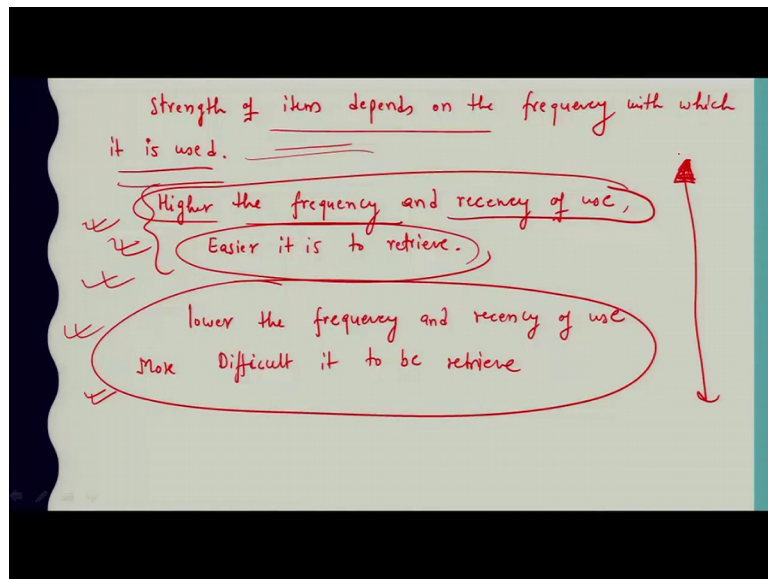 Strength of items depends on the frequency with which
it is used.
Higher the frequency and recency of use,
Easier it is to retrieve.
lower the frequency and recency of use
More Difficult it to be retrieve